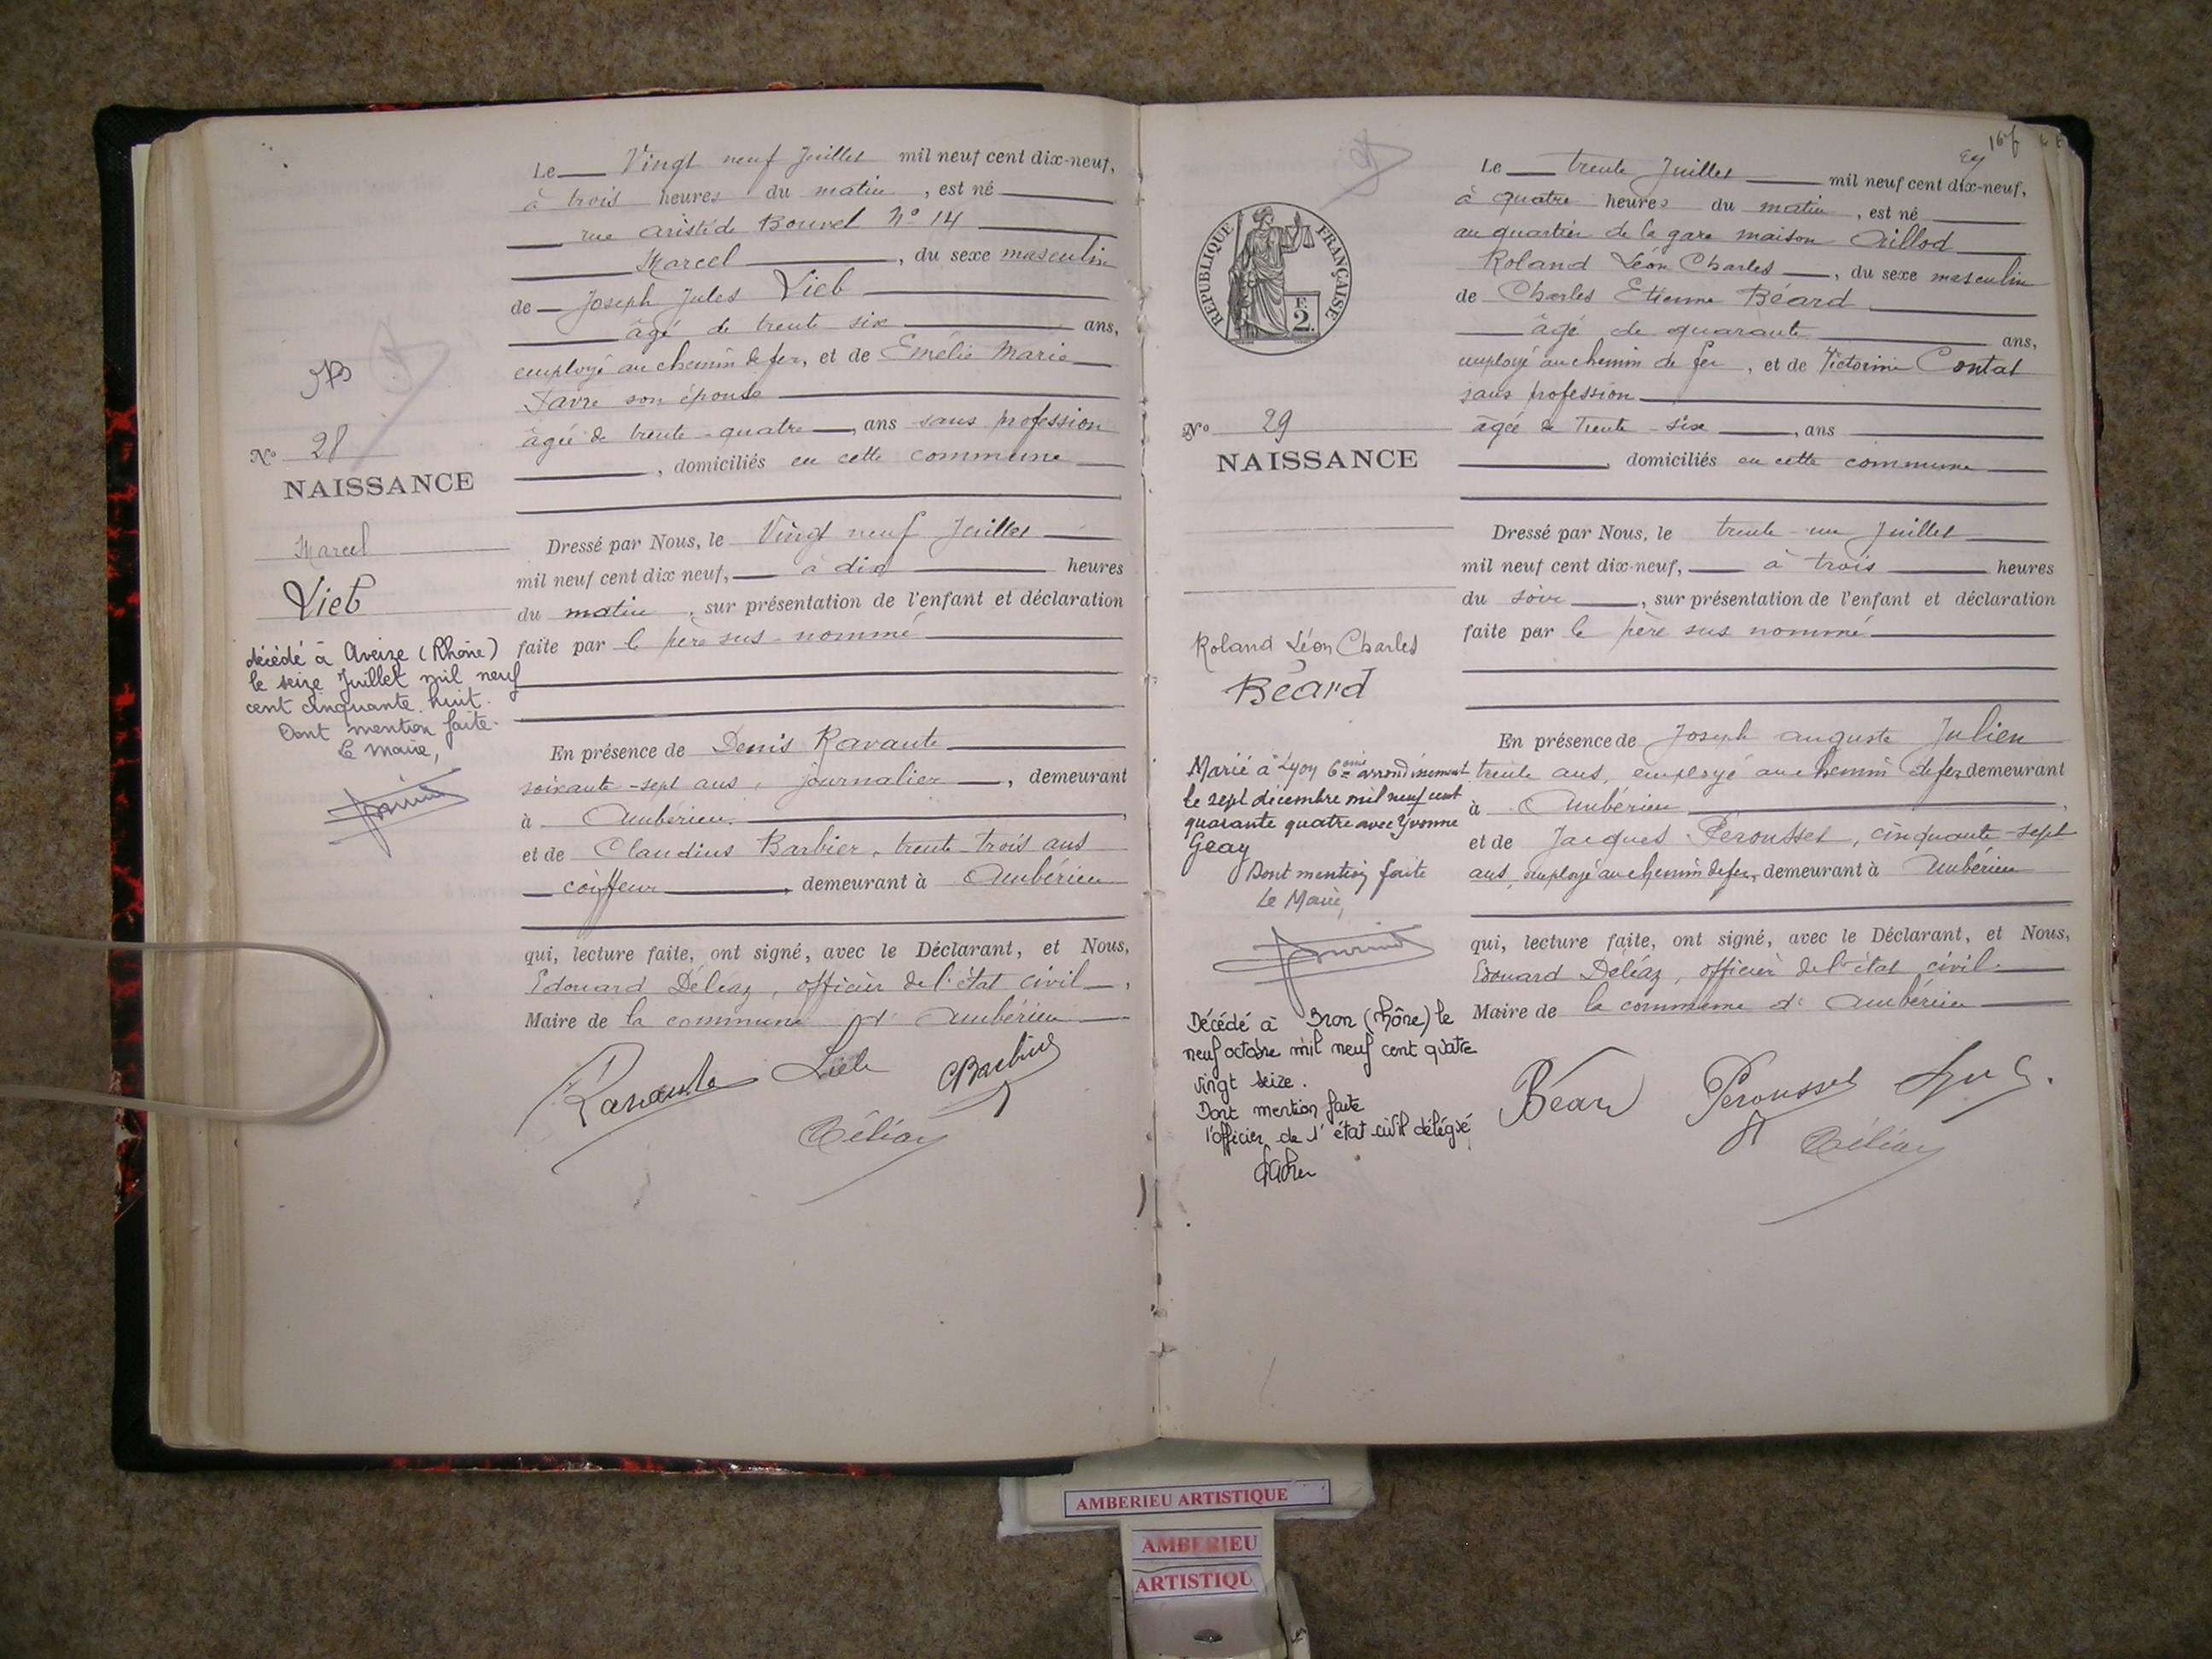 Le Vingt neuf Juillet mil neuf cent dix-neuf,
à trois heures du matin, est né
rue aristide Bouvet N° 14
Marcel, du sexe masculin
de Joseph Jules Vieb
âgé de trente six ans,
employé au chemin de fer, et de Emélie Marie
Favre son épouse
âgée de trente-quatre, ans sans profession
, domiciliés en cette commune
N° 28
NAISSANCE
Marcel
Vieb
décédé à Aveize (Rhône)
le seize Juillet mil neuf
cent cinquante huit.
Dont mention faite.
Le Maire,
Dressé par Nous, le Vingt neuf Juillet
mil neuf cent dix neuf, à dix heures
du matin, sur présentation de l'enfant et déclaration
faite par le père sus-nommé
En présence de Denis Ravaute
soixante-sept ans, journalier, demeurant
à Ambérieu,
et de Claudius Barbier, trente trois ans
coiffeur, demeurant à Ambérieu
qui, lecture faite, ont signé, avec le Déclarant, et Nous,
Edouard Deléaz, officier de l'état civil,
Maire de la commune d'Ambérieu
Ravaute CBarbier
Deléaz
16
RÉPUBLIQUE FRANÇAISE
F.
2.
Le trente Juillet mil neuf cent dix-neuf,
à quatre heures du matin, est né
au quartier de la gare maison
Roland Léon Charles, du sexe masculin
de Charles Etienne Béard
âgé de quarante ans,
employé au chemin de fer, et de Victorine Contat
sans profession
âgée de Trente-six, ans
, domiciliés en cette commune
N° 29
NAISSANCE
Roland Léon Charles
Béard
Marié à Lyon 6ème arrondissement
le sept décembre mil neuf cent
quarante quatre avec Yvonne
Geay
Dont mention faite
Le Maire,
Décédé à Bron (Rhône) le
neuf octobre mil neuf cent quatre
vingt seize.
Dont mention faite
l'officier de l'état-civil délégué
Dressé par Nous, le trente-un Juillet
mil neuf cent dix-neuf, à trois heures
du soir, sur présentation de l'enfant et déclaration
faite par le père sus nommé
En présence de Joseph auguste Julien
trente ans, employé au chemin de fer demeurant
à Ambérieu,
et de Jacques Pérousset, cinquante-sept
ans, employé au chemin de fer, demeurant à Ambérieu
qui, lecture faite, ont signé, avec le Déclarant, et Nous,
Edouard Deléaz, officier de l'état civil.
Maire de la commune d'Ambérieu
Béard Pérousset
Deléaz
AMBERIEU ARTISTIQUE
AMBERIEU
ARTISTIQU